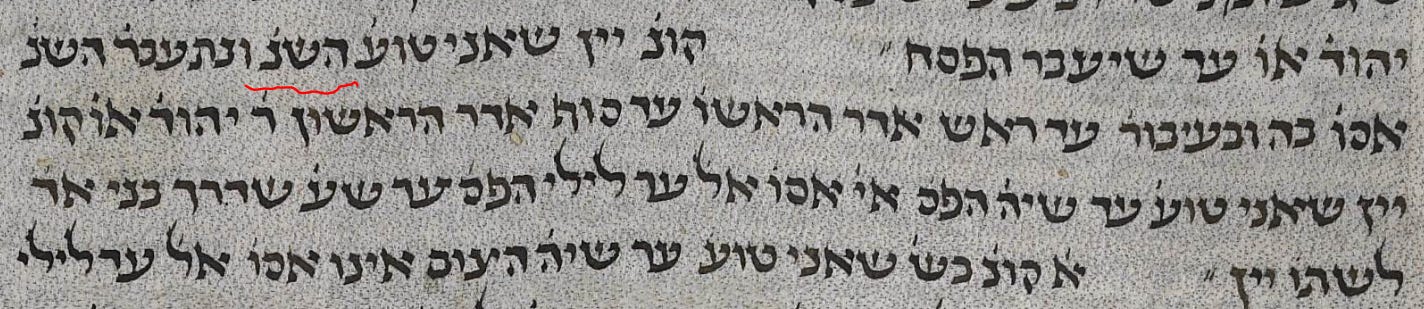 יהוד׳ או׳ עד שיעבר הפסח ״ קונ׳ יין שאני טוע׳ השנ׳ ונתעבר׳ השנ׳
אסו׳ בה ובעיבור׳ עד ראש אדר הראשו׳ עד סוף אדר הראשון ר׳ יהוד׳ או׳ קונ׳
יין שאיני טוע׳ עד שיה׳ הפס׳ אי׳ אסו׳ אל׳ עד לילי הפס׳ עד שע׳ שדרך בני אד׳
לשתו׳ יין ״ א׳ קונ׳ בש׳ שאני טוע׳ עד שיה׳ הצום אינו אסו׳ אל׳ עד לילי